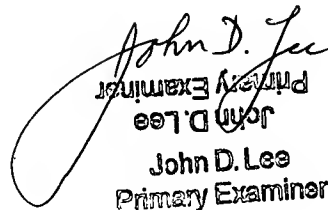 John D. Lee
Primary Examiner
John D. Lee
John D. Lee
Primary Examiner